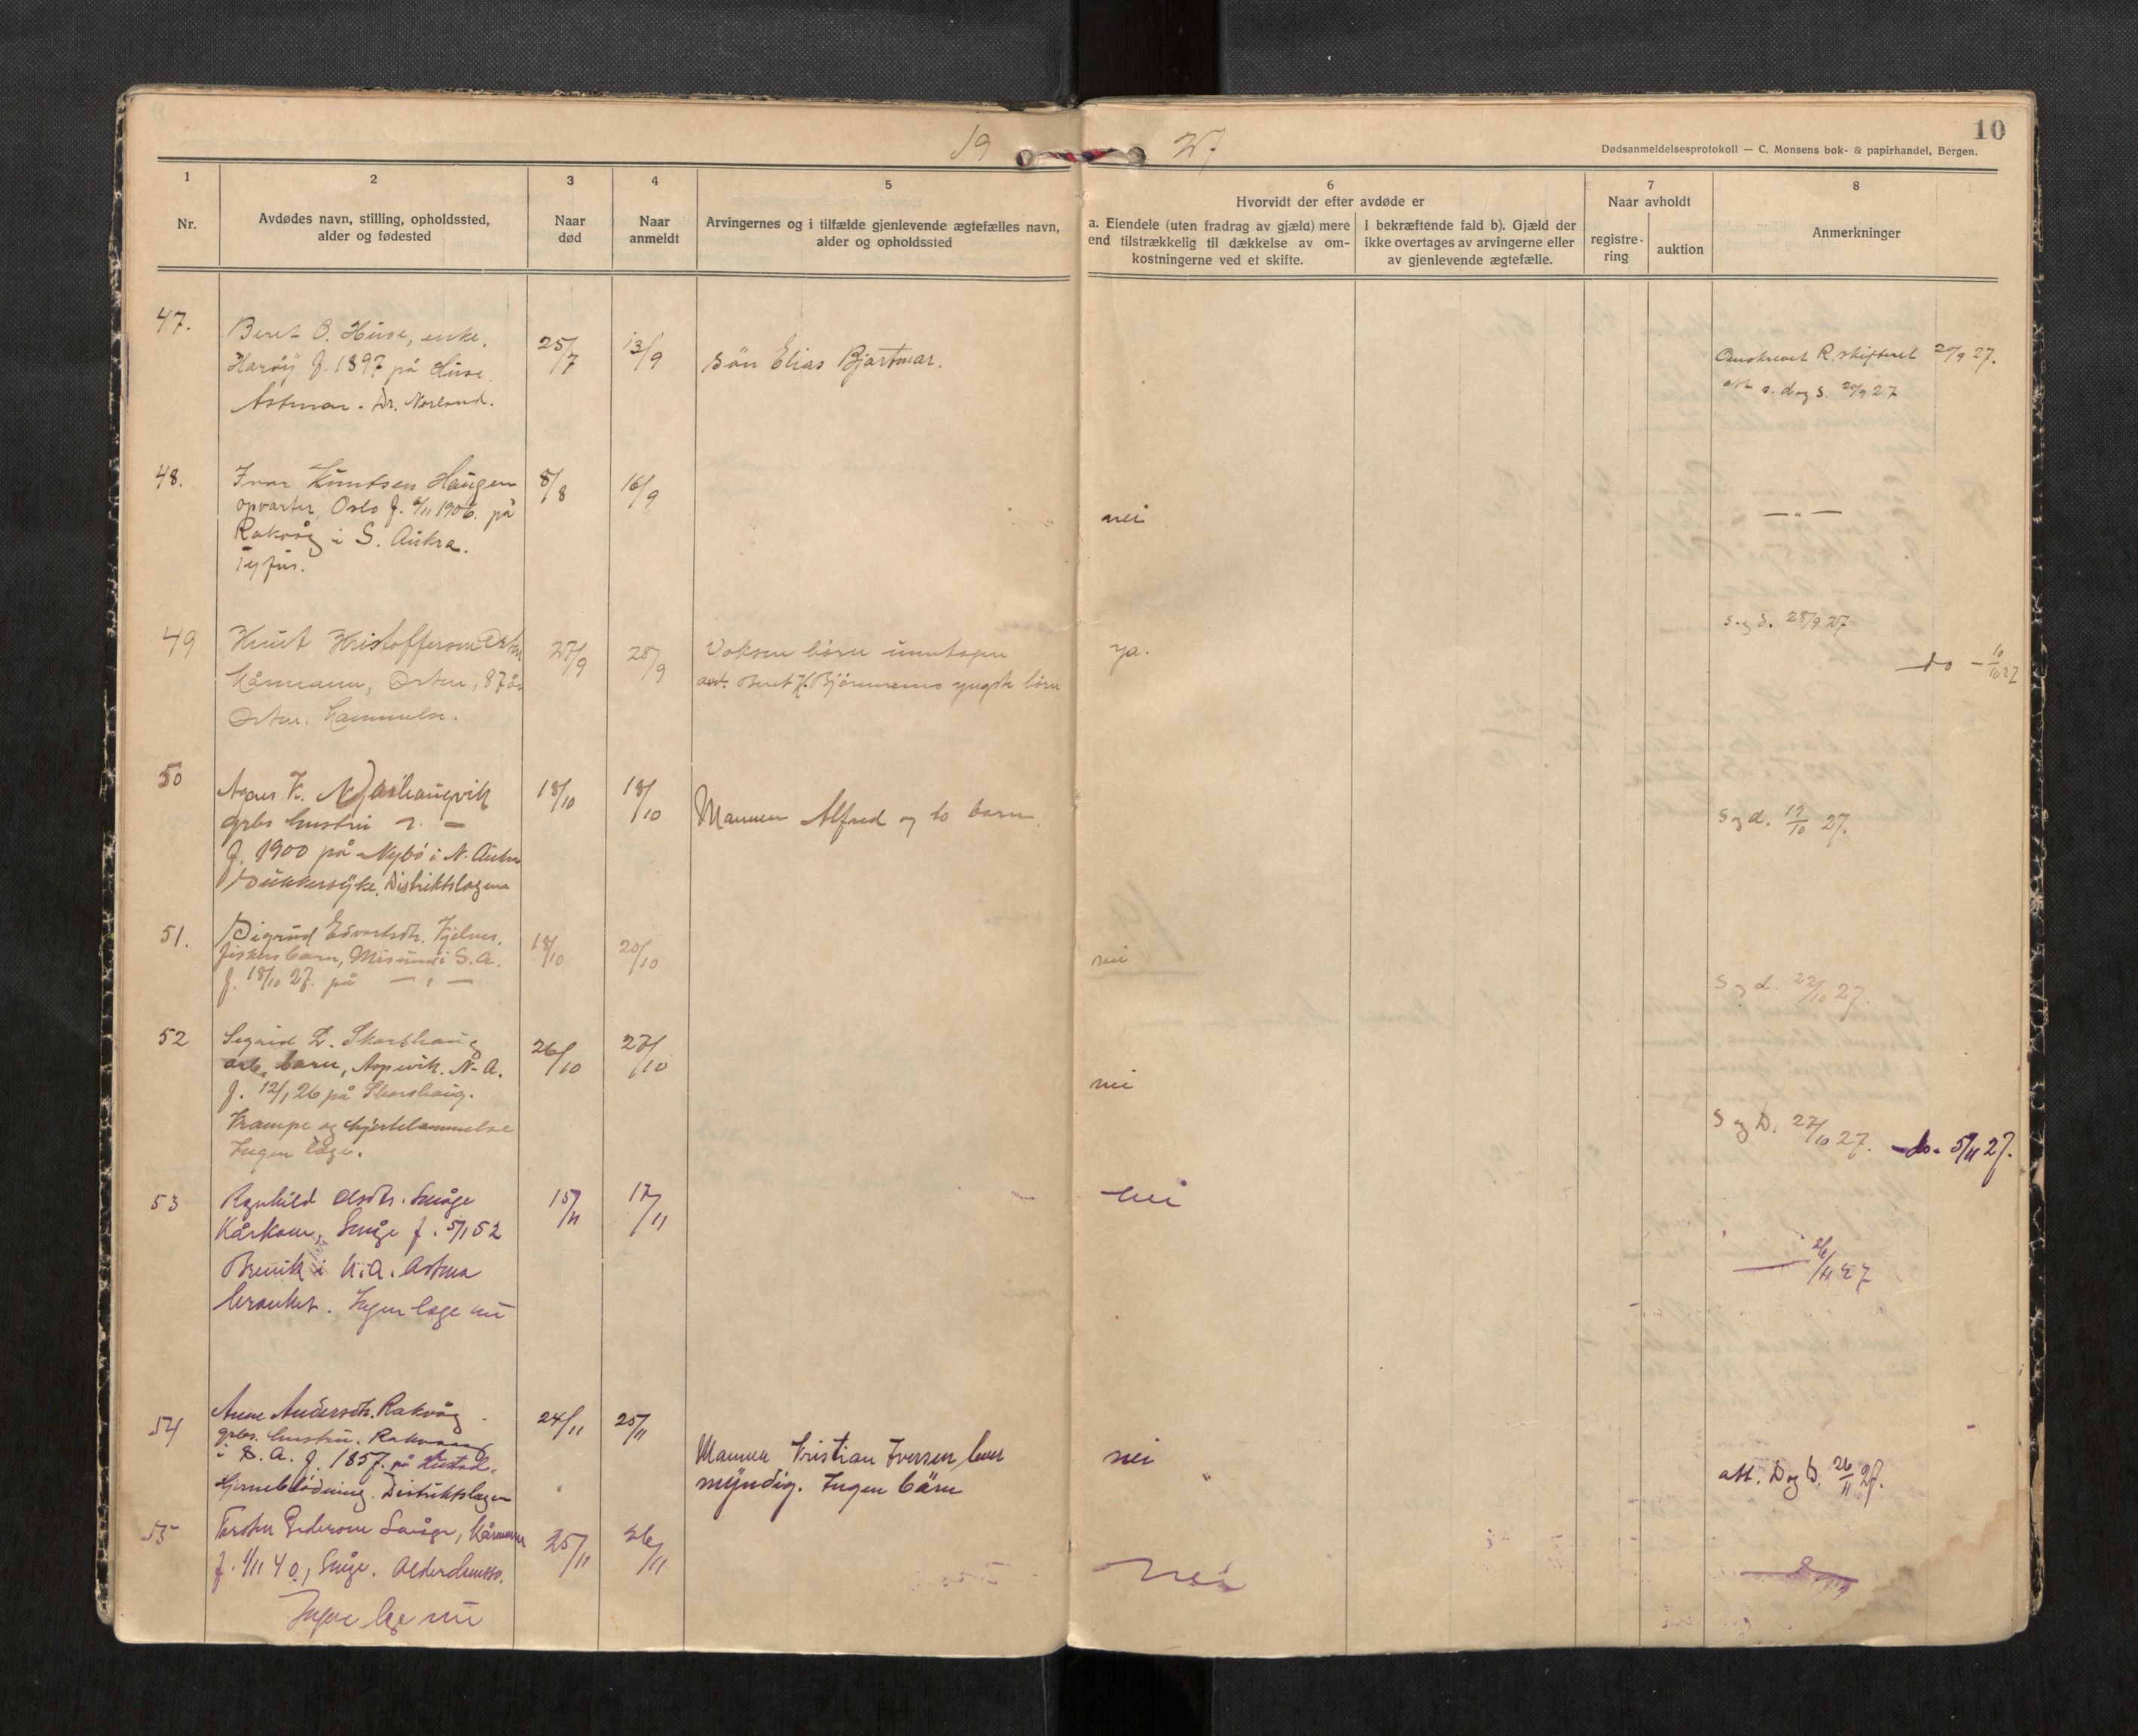 19 27
10
Dødsanmeldelsesprotokoll — C. Monsens bok- & papirhandel, Bergen.
1
Nr.
2
Avdødes navn, stilling, opholdssted,
alder og fødested
3
Naar
død
4
Naar
anmeldt
5
Arvingernes og i tilfælde gjenlevende ægtefælles navn,
alder og opholdssted
6
Hvorvidt der efter avdøde er
a. Eiendele (uten fradrag av gjæld) mere
end tilstrækkelig til dækkelse av om-
kostningerne ved et skifte.
I bekræftende fald b). Gjæld der
ikke overtages av arvingerne eller
av gjenlevende ægtefælle.
7
Naar avholdt
registre-
ring
auktion
8
Anmerkninger
47.
Beret O. Huse, enke.
Harøy f. 1897 på Huse.
Astma. Dr. Norland.
25/7
13/9
Sön Elias Bjartmar.
R. skifteret 20/9 27.
att s. og s. 20/9 27
48.
Ivar Knutsen Haugen
opvarter, Oslo f. 6/11 1906. på
Rakvåg i S. Aukra.
Tyfus.
8/8
16/9
nei
— " —
49
Knut Kristoffersen
Kårmann, Orten, 87 år
Orten. Lammelse.
27/9
28/9
Voksne börn unntagen
avd. Beret K. Bjørnerems yngste börn
ja.
s. og d. 28/9 27
do - 10/10 27
50
Agnes K.
grbr hustru
f. 1900 på Nybö i N. Aukra
Sukkersyke. Distriktslægen
18/10
18/10
Mannen Alfred og to barn.
S og d. 19/10 27.
51.
Sigrud Edvartsdtr.
fiskers barn, Misund i S. A.
f. 18/10 27. på — " —
18/10
20/10
nei
S og d. 22/10 27.
52
Sigrid L. Skarshaug
arb. barn, N. A.
f. 12/1 26 på Skarshaug.
Krampe og hjertelammelse
Ingen læge.
26/10
27/10
nei
S og D. 27/10 27. do. 5/11 27.
53
Ragnhild Olsdtr. Småge
Kårkone, Småge f. 5/1 52
i N. A. Astma
bronket. Ingen læge nu
15/11
17/11
nei
26/11 27
54
Anne Andersdtr. Rakvåg
grbr. hustru. Rakvaag
i S. A. f. 1857. på Hustad.
Hjerneblödning. Distriktslægen
24/11
25/11
Mannen Kristian Iversen lever
myndig. Ingen börn
nei
att. D og D. 26/11 27.
55
Torsten Pedersen Småge, Kårmann
f. 1/11 40, Småge.
Ingen læge nu
25/11
26/11
nei